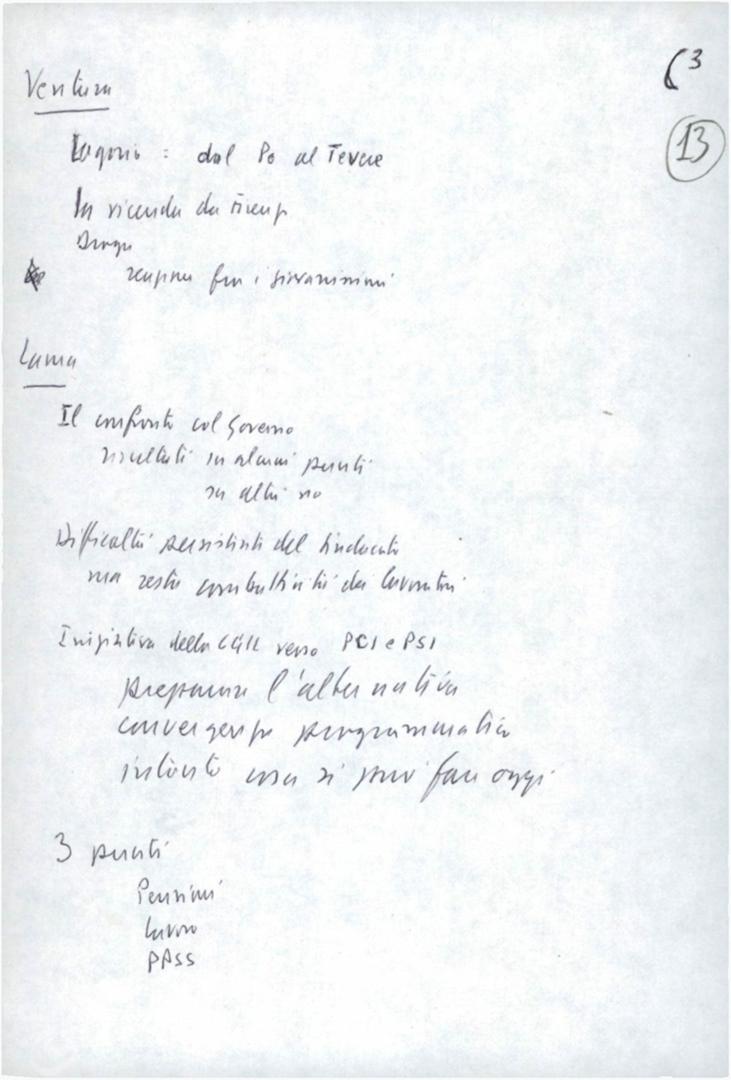 (3
13
Ventura
Lagorio : dal Po al Tevere
La vicenda di Firenze
Droga
fra i giovanissimi
Lama
Il confronto col Governo
risultati in alcuni punti
su altri no
Difficoltà persistenti del sindacato
ma resta combattività dei lavoratori
Iniziativa della CGIL verso PCI e PSI
preparare l'alternativa
convergenza programmatica
intanto cosa si può fare oggi
3 punti
Pensioni
lavoro
PPSS